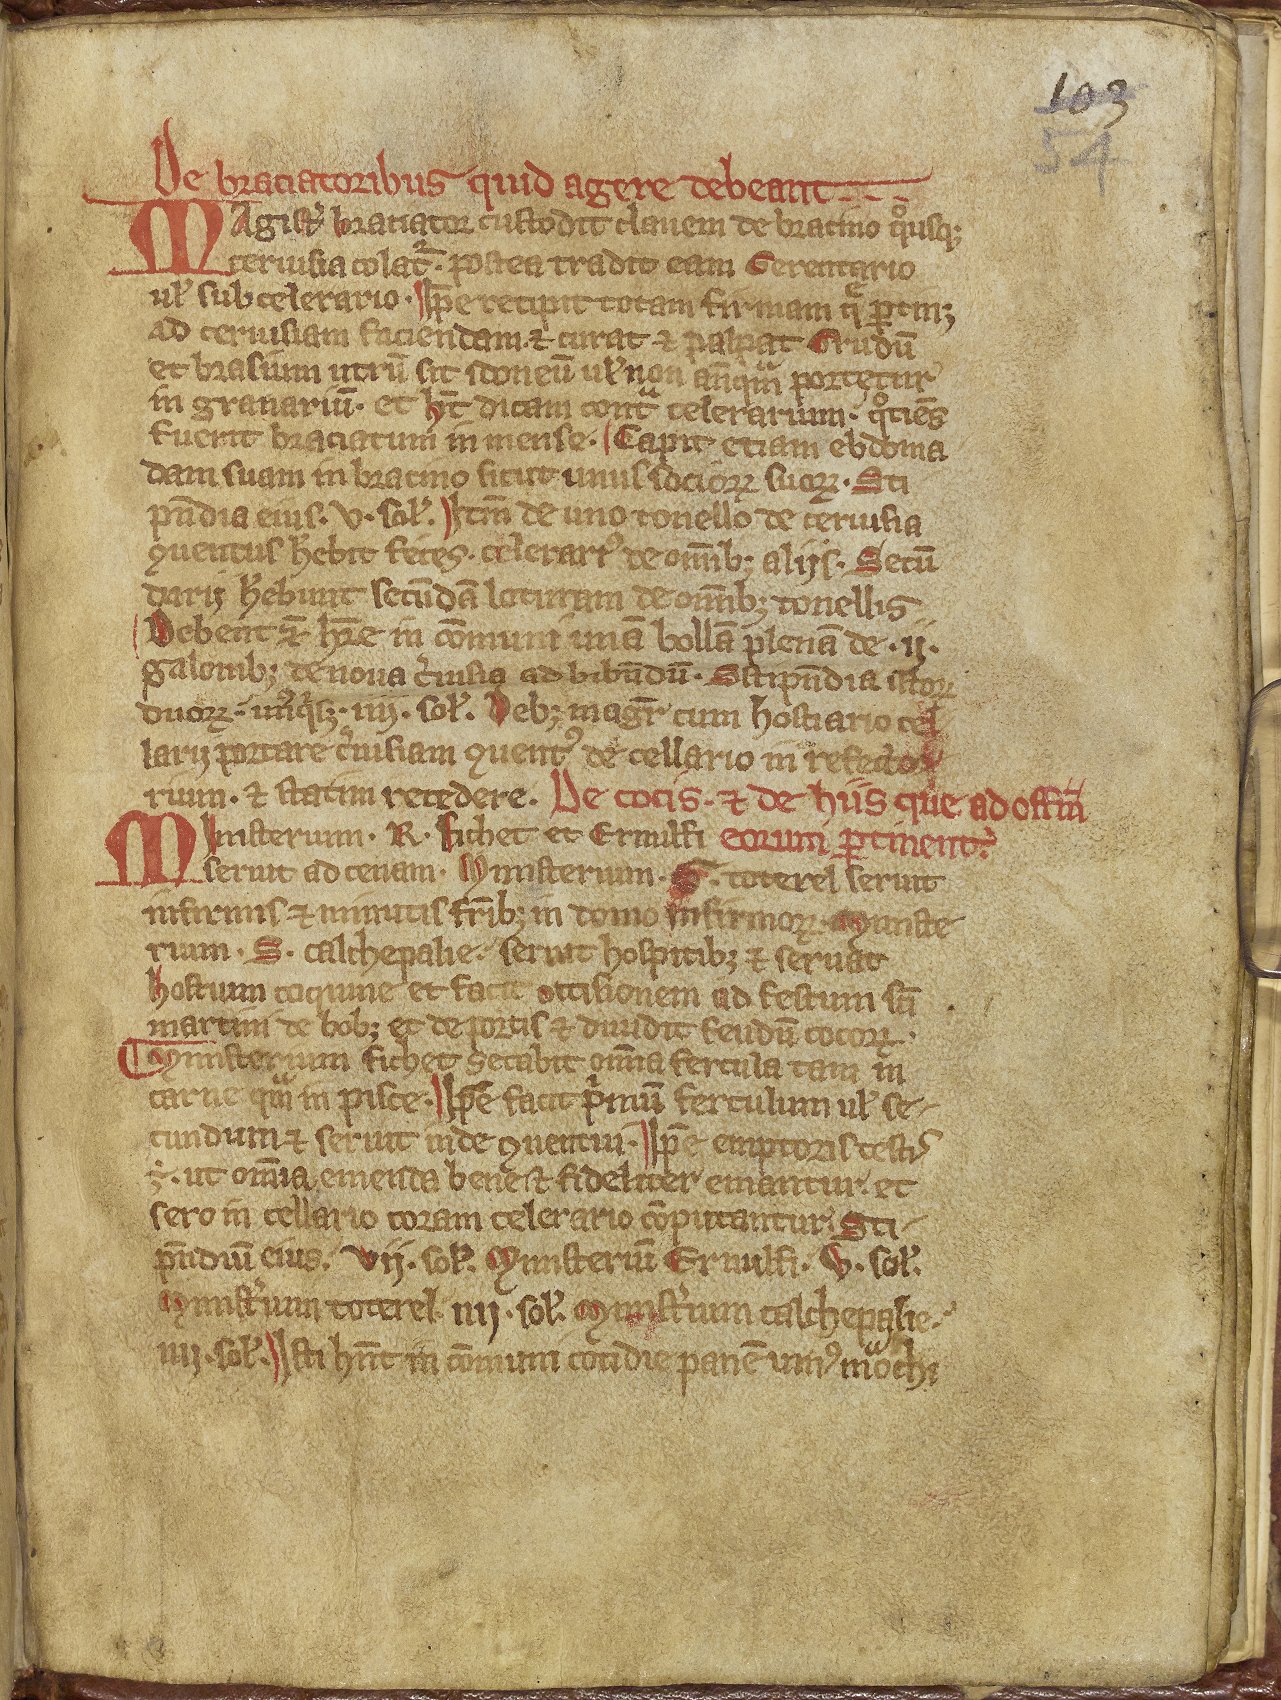 103
54
De braciatoribus quid agere debeant
MAgist᷑ braciator custodit clauem de bracino qͦusq;
ceruisia colat᷑. postea tradit eam Gerentario
ul̓ sub celerario. Ip̄e recipit totam firmam q̄ ꝑtin;
ad ceruisiam faciendam. ⁊ curat ⁊ palpat Grudū
et brasium utrū sit ẏdoneū ul̓ non anͣq̄m portetur
in granariū. et h̄t dicam contͣ celerarium. qͦtiens
fuerit braciatum in mense. Capit etiam ebdoma
dam suam in bracino sicut unus socioꝝ suoꝝ. Sti
pn̄dia eius. v. sol̓. Itm̄ de uno tonello de ceruisia
quentus h̓ebit feces. celerari᷒ de om̄ib; alijs. Secū
darij h̓ebunt secūdā loturam de om̄ib; tonellis
Debent ⁊̄ hr̄e in cōmuni unā bollā plenā de .ij.
galonib; de noua c̓uisia ad bibn̄dū. Stipn̄dia istoꝝ
duoꝝ. uni᷒cuiq;. iiij. sol̓. Deb; magr̄ cum hostiario cel
larij portare c̓uisiam quent᷒ de cellario in refecto
rium. ⁊ statim recedere. De cocis. ⁊ de hiis que ad offm̄
MInisterium. R. fichet et Ernulfi eorum ꝑtinent.
seruit ad cenam. Ministerium. G. toterel seruit
infirmis ⁊ minutis fr̄ib; in domo infirmoꝝ. Ministe
rium. S. calchepalie. seruit hospitib; ⁊ seruat
hostium coquine et facit occisionem ad festum sc̄i
martini de bob; et de porcis ⁊ diuidit feudū cocoꝝ.
Ministerium fichet Secabit om̄ia fercula tam in
carne qͣm in pisce. Ip̄e facit p̓mū ferculum ul̓ se
cundum ⁊ seruit inde quentui. Ip̄e emptoris testis
ē. ut om̄ia emenda bene ⁊ fideliter emantur. et
sero in cellario coram celerario cōputantur. Sti
pn̄diū eius. vij. sol̓. Ministeriū Ernulfi. v. sol̓.
Minist̓ium toterel. iiij. sol̓. Minist̓ium calchepalie.
iiij. sol̓. Isti hn̄t in cōmuni cotidie panē uni᷒ mͦachi